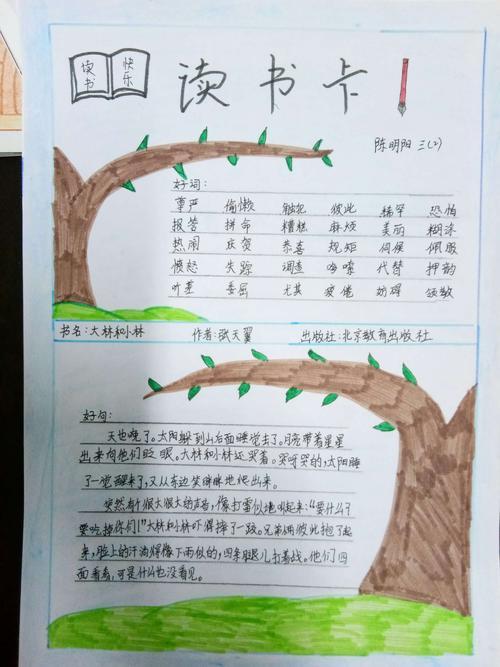 读书 快乐
读书卡
陈明阳 三(2)
好词:
尊严 偷懒 触犯 彼此 稀罕 恐怕
报答 拼命 糟糕 麻烦 美丽 糊涂
热闹 庆贺 恭喜 规矩 伺候 佩服
愤怒 失踪 调查 咕噜 代替 押韵
叶茎 委屈 尤其 疲倦 妨碍 领教
书名:大林和小林 作者:张天翼 出版社:北京教育出版社
好句:
天也晚了。太阳躲到山后面睡觉去了。月亮带着星星
出来向他们眨眼。大林和小林还哭着。哭呀哭的,太阳睡
了一觉醒来了,又从东边笑眯眯地爬出来。
突然有个很大很大的声音,像打雷似地叫起来:“要什么?
要吃掉你们!”大林和小林吓得摔了一跤。兄弟俩彼此抱了起
来,脸上的汗油得像下雨似的,四条腿儿打着战。他们四
面看看,可是什么也没看见。